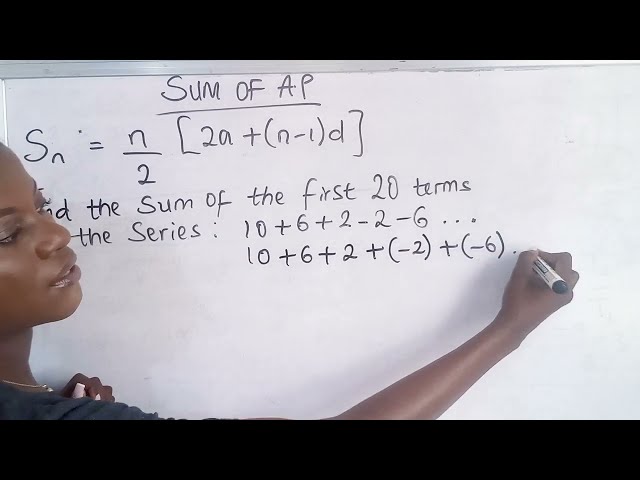 SUM OF A.P
Sn = n/2 [2a+(n-1)d]
the sum of the first 20 terms
the Series: 10+6+2-2-6 ...
10+6+2+(-2)+(-6) ..